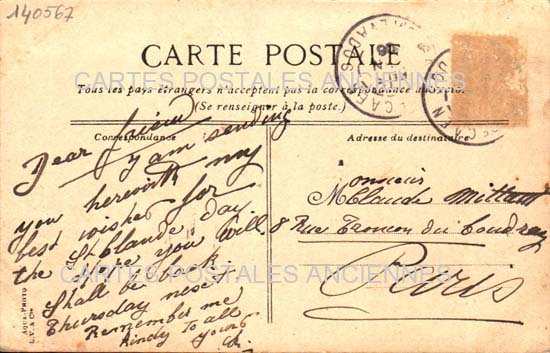 140567
CARTE POSTALE
CARTES POSTALES ANCIENNES
Tous les pays étrangers n'acceptent pas la correspondance au recto.
(Se renseigner à la poste.)
Correspondance
Dear friend
I am sending
you herewith my
best wishes for
the St Claude day.
Hope you will.
Shall be back
Thursday next
Remember me
kindly to all
yours
Adresse du destinataire
Monsieur
M Claude
8 Rue Tronson du Coudray
Paris
CARTES POSTALES ANCIENNES
AQUA-PHOTO
L. V. & Cie
CAEN
CALVADOS
CAEN